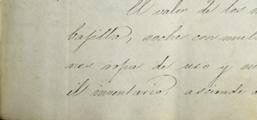 El valor de los m
bajilla, coche con mul
nes ropa de uso y m
el inventario, asciende a